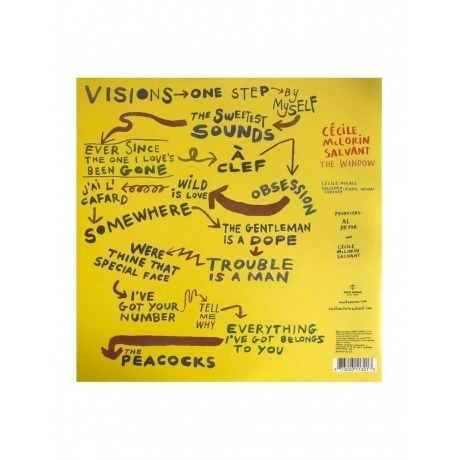 VISIONS → ONE STEP → BY
MYSELF
THE SWEETEST
SOUNDS
EVER SINCE
THE ONE I LOVE'S
BEEN GONE
À
CLEF
OBSESSION
WILD
IS LOVE
J'AI L'
CAFARD
SOMEWHERE
THE GENTLEMAN
IS A DOPE
TROUBLE
IS A MAN
WERE
THINE THAT
SPECIAL FACE
I'VE
GOT YOUR
NUMBER
TELL
ME
WHY
EVERYTHING
I'VE GOT BELONGS
TO YOU
THE
PEACOCKS
CÉCILE
McLORIN
SALVANT
THE WINDOW
CÉCILE: VOCALS
SULLIVAN: PIANO, ORGAN
FORTNER
PRODUCERS:
AL
PRYOR
AND
CÉCILE
McLORIN
SALVANT